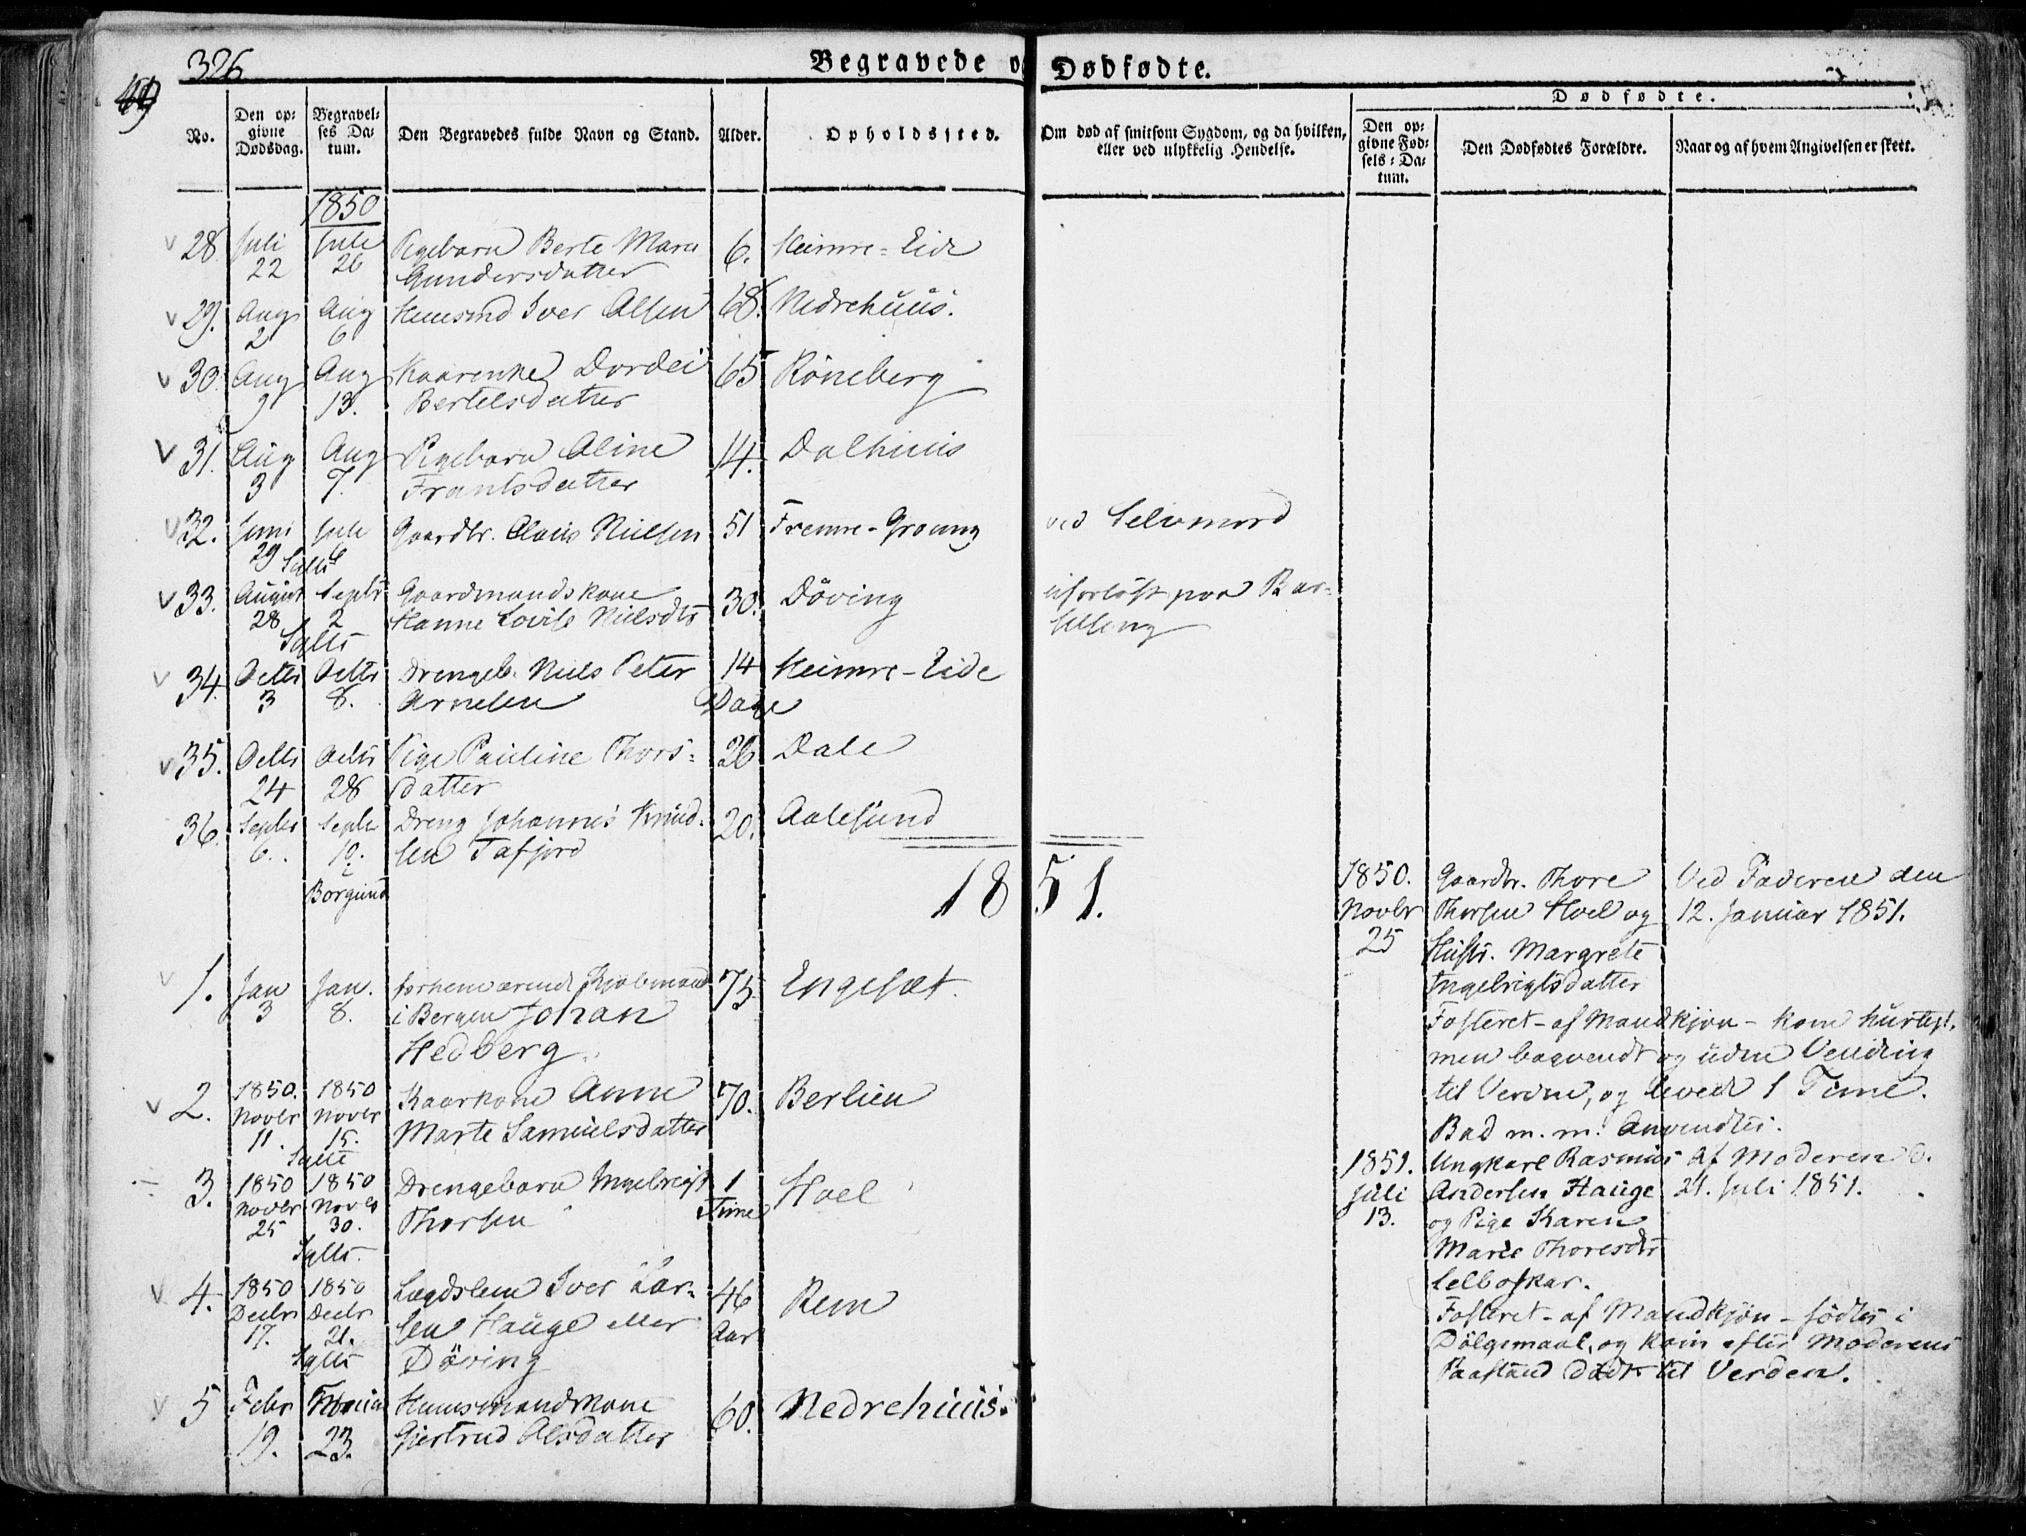 326
Begravede og Dødfødte.
No.
Den op=
givne
Dødsdag.
Begravel=
ses Da=
tum.
Den Begravedes fulde Navn og Stand.
Alder.
Opholdssted.
Om død af smitsom Sygdom, og da hvilken,
eller ved ulykkelig Hendelse.
Dødfødte.
Den op=
givne Fød=
sels=Da=
tum.
Den Dødfødtes Forældre.
Naar og af hvem Angivelsen er skeet.
1850
28. Juli Juli Pigebarn Berte Maria 6. Heimre=Eide
22 26 Gundersdatter
29. Aug Aug Huusmd Iver Olsen 68. Nedrehuus.
2 6
30. Aug Aug Kaarenke Dordei 65 Röneberg
9 13. Bertelsdatter
31. Aug Aug Pigebarn Oline 14. Dalhuus
3 7. Frantsdatter
32. Juni Juli Gaardbr. Claus Nielsen 51 Fremre-Groung ved Selvmord
29 6
Sylte
33. August Septr Gaardmandskone 30. Döving uforløst paa Bar=
28 2 Hanne Lovise Nielsdtr selseng
Sylte
34. Octbr Octbr Drengeb. Niels Peter 14 Heimre-Eide
3 8. Arnesen Dage
35. Octbr Octbr Pige Pauline Thors= 26 Dale
24 28 datter
36. Septbr Septbr Dreng Johannes Knud= 20. Aalesund
6. 10. sen Tafjord
Borgund
1851.
1. Jan Jan. forhenværende Kjøbmand 75. Engesæt.
3 8. i Bergen Johan
Hedberg.
2. 1850. 1850 Kaarkone Anne 70. Berlien
Novbr Novbr Marte Samuelsdatter
11. 15.
Sylte
3. 1850 1850 Drengebarn Ingebrigt 1 Hoel
Novbr Novbr Thorsen Time
25 30.
Sylte.
4. 1850 1850 Lægdslem Iver Lar= 46 Rem
Decbr Decbr sen Hauge eller Aar
17. 21. Döving
Sylte
5 Febr Februar Huusmandskone 60. Nedrehuus.
19. 23. Giertrud Olsdatter
1850. Gaardbr. Thore Ved Faderen den
Novbr Thorsen Hoel og 12. Januar 1851.
25 Hustr. Margrete
Ingebrigtsdatter
Fosteret - af Mandkjøn - kom hurtigt,
men bagvendt og uden Vending
til Verden, og levede 1 Time.
Bad m. m. Anvendtes.
1851. Ungkarl Rasmus Af Moderen d.
Juli Andersen Hauge 21. Juli 1851.
13. og Pige Karen
Marie Thoresdtr
Selboskar.
Fosteret - af Mandkjøn - fødtes i
Dölgsmaal, og kom efter Moderens
Paastand dødt til Verden.